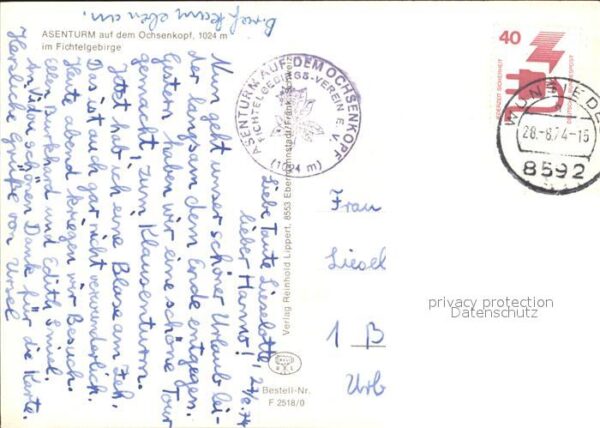 Brief kam eben an.
ASENTURM auf dem Ochsenkopf, 1024 m
im Fichtelgebirge
ASENTURM AUF DEM OCHSENKOPF
FICHTELGEBIRGS-VEREIN E.V.
(1024 m)
Liebe Tante Lieselotte, 27/8.74
lieber Hanno!
Nun geht unser schöner Urlaub lei-
der langsam dem Ende entgegen.
Gestern haben wir eine schöne Tour
gemacht, zum Klausenturm.
Jetzt hab ich eine Blase am Zeh.
Das ist auch gar nicht verwunderlich.
Heute abend kriegen wir Besuch.
Ellen, Burkhard und Edith
schönen Dank für die Karte.
Herzliche Grüße von Ursel
Verlag Reinhold Lippert, 8553 Ebermannstadt/Fränk. Schweiz
Bestell-Nr.
F 2518/0
40
JEDERZEIT SICHERHEIT
DEUTSCHE BUNDESPOST
WUNSIEDEL
28.-8.74-15
8592
Frau
Liesel
1 B
Urb
privacy protection
Datenschutz